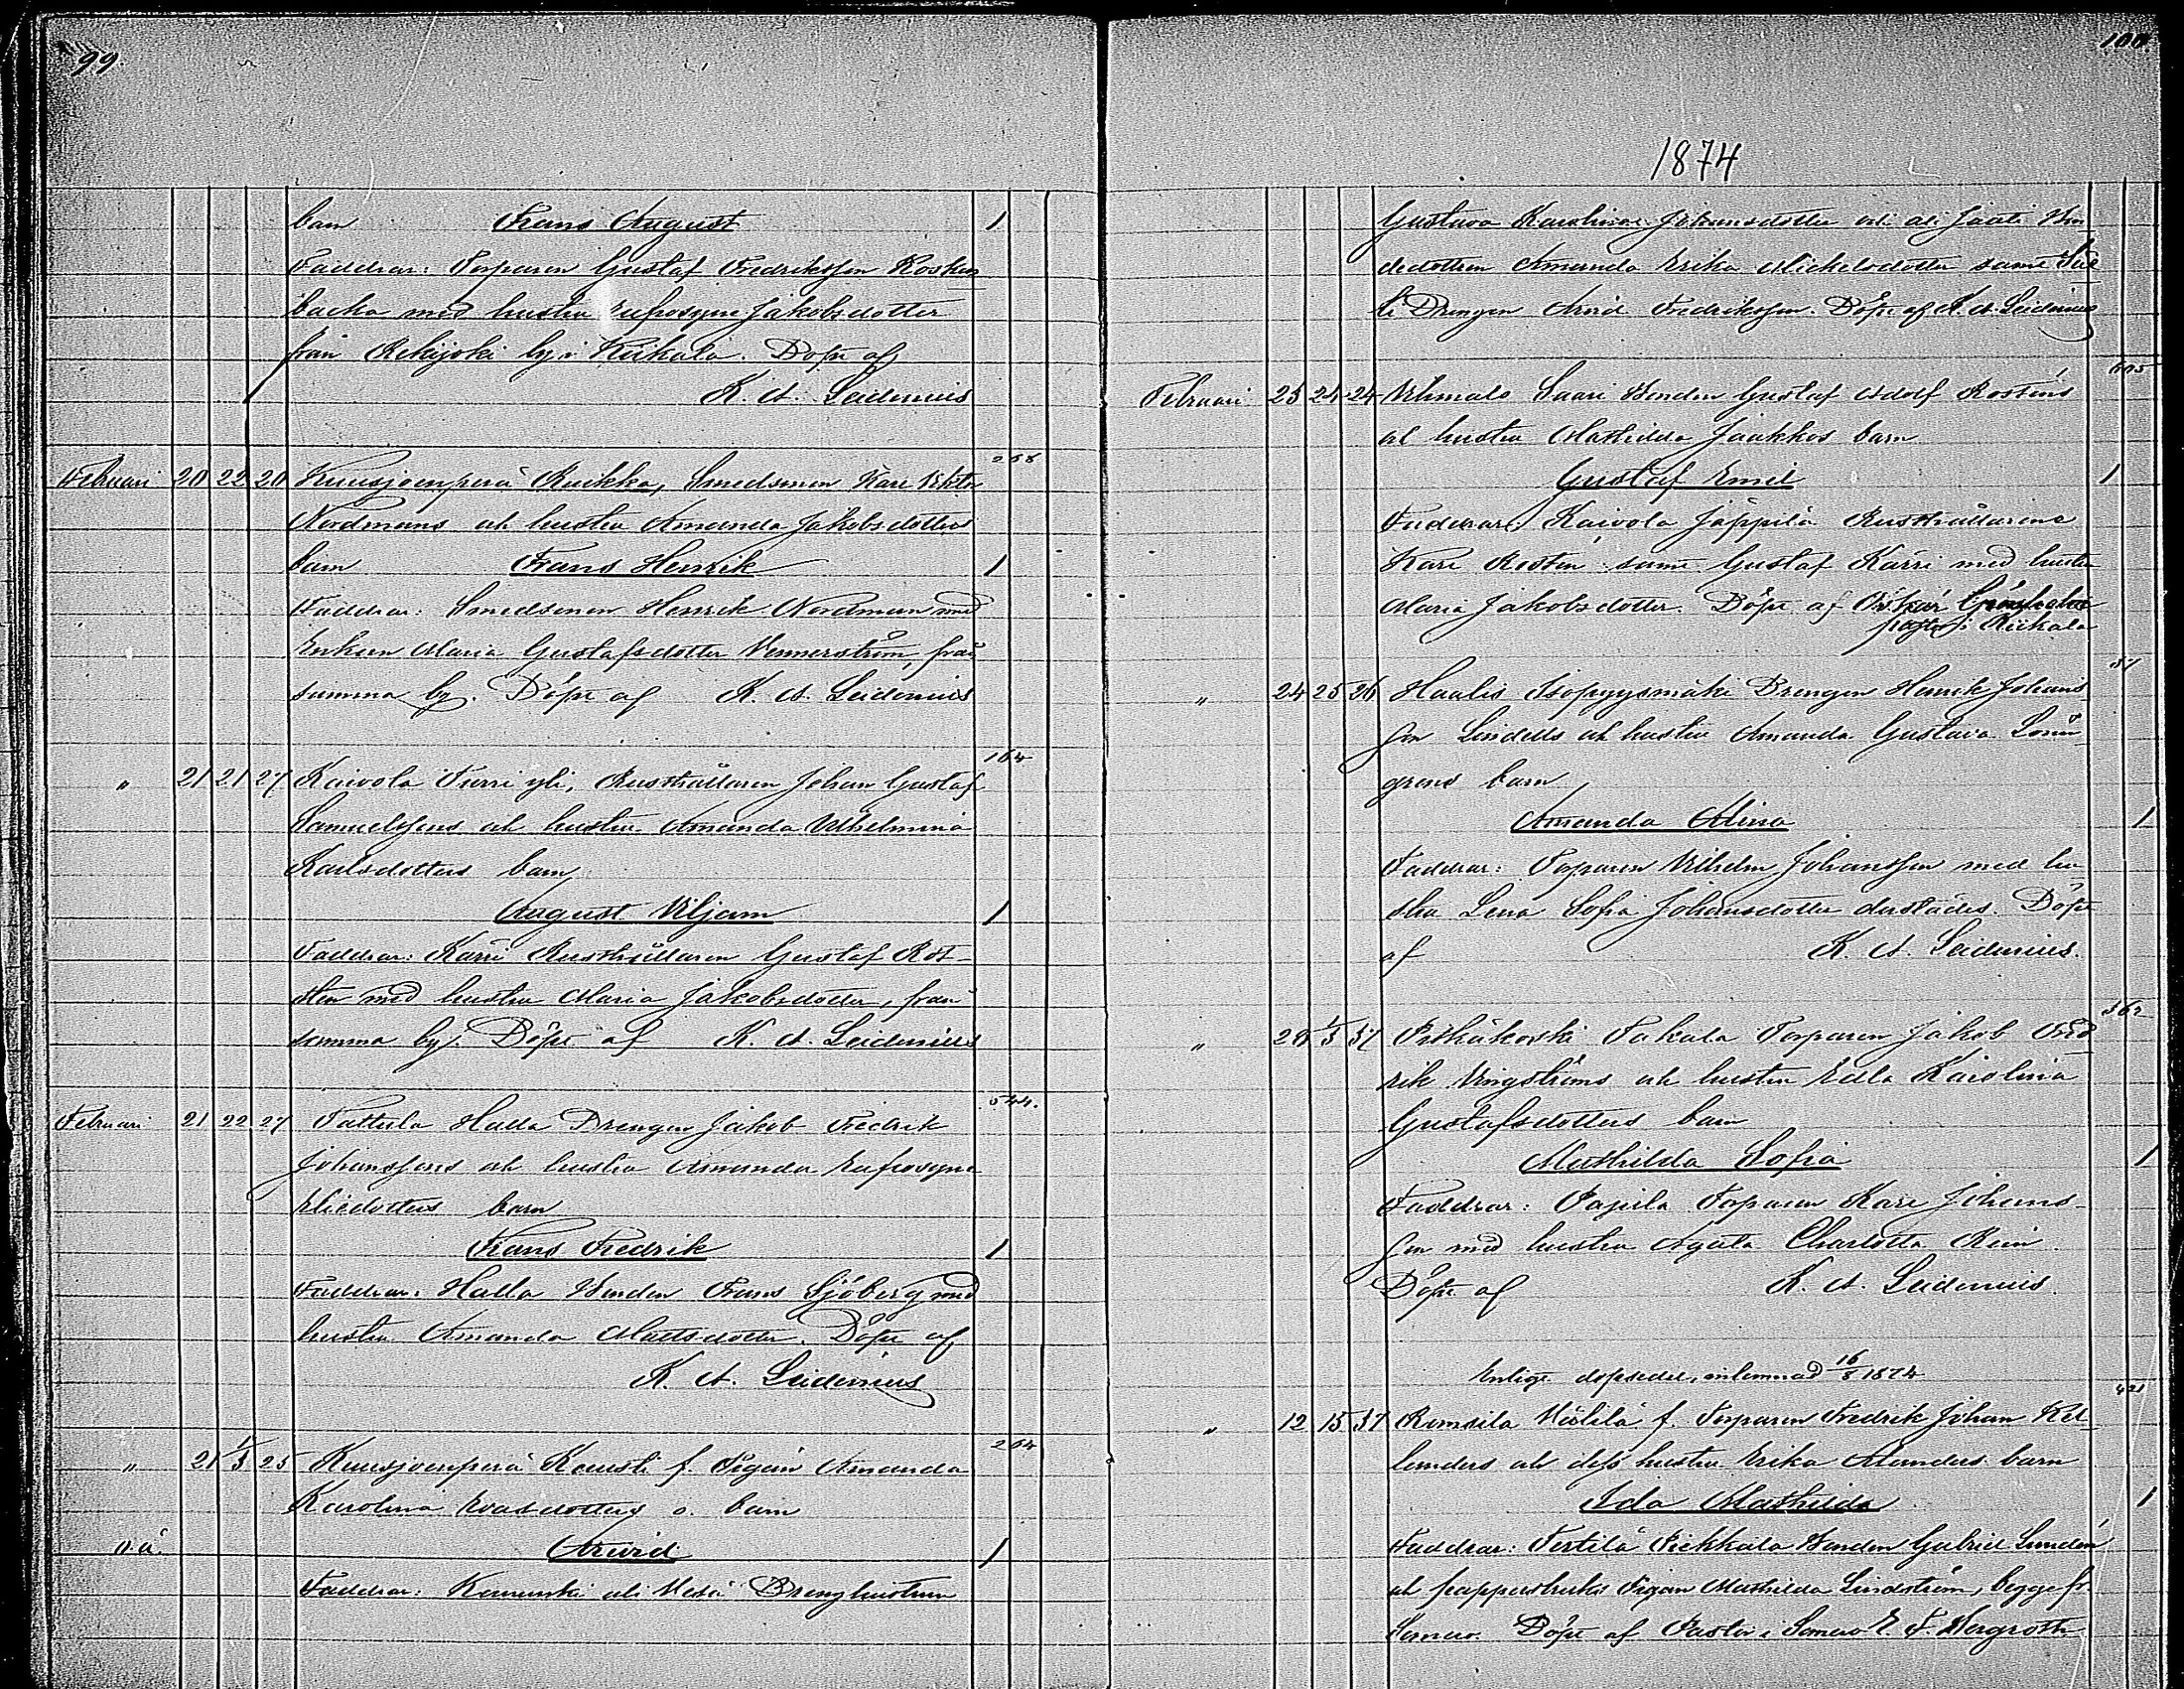 99.
barn Frans August 1
Faddrar: Torparen Gustaf Fredriksson Koskus
backa med hustru Eufrosyne Jakobsdotter
från Rekijoki by i Kiikala. Döpt af
K. A. Leidenius
258
Februari 20 22 20 Kuusjoenperä Ruikka, Smedsonen Karl Viktor
Nordmans och hustru Amanda Jakobsdotters
barn Frans Henrik 1
Faddrar: Smedsonen Henrik Nordman med
Enkan Maria Gustafsdotter Vennerström, från
samma by. Döpt af K. A. Leidenius
164
" 21 21 27 Kaivola Turri yli, Rusthållaren Johan Gustaf
Samuelssons och hustru Amanda Vilhelmina
Karlsdotters barn
August Viljam 1
Faddrar: Karri Rusthållaren Gustaf Ros-
sten med hustru Maria Jakobsdotter, från
samma by. Döpt af K. A. Leidenius
544.
Februari 21 22 27 Pattula Halla Drengen Jakob Fredrik
Johanssons och hustru Amanda Eufrosyne
Eliedotters barn
Frans Fredrik 1
Faddrar: Halla Inden Frans Sjöberg med
hustru Amanda Mattsdotter. Döpt af
K. A. Leidenius
264
" 21 1/3 25 Kuusjoenperä Kausti f. Pigan Amanda
Karolina Evasdotters o. barn
o.ä. Arvid 1
Faddrar: Kanunki ali Mesä Drenghustrun
100.
1874
Gustava Karolina Johansdotter och ali Jaati In-
dedottren Amanda Erika Mickelsdotter samt
Drengen Arvid Fredriksson. Döpt af K. A. Leidenius
605
Februari 23 24 24 Vihmalo Saari Inden Gustaf Adolf Rosténs
och hustru Mathilda Jaakkos barn
Gustaf Emil 1
Faddrar: Kaivola Jäppilä Rusthållarene
Karl Rostén samt Gustaf Kärri med hustru
Maria Jakobsdotter. Döpt af Oskar
pastor i Kiikala
57
" 24 25 26 Haalis Isopyysmäki Drengen Henrik Johans-
son Lindells och hustru Amanda Gustava Lönn-
grens barn
Amanda Alina 1
Faddrar: Torparen Vilhelm Johansson med hu-
stru Lena Sofia Johansdotter derstädes. Döpt
af K. A. Leidenius.
562
" 28 1/3 37 Pitkäkoski Takala Torparen Jakob Fred
rik Engströms och hustru Edla Karolina
Gustafsdotters barn
Mathilda Sofia 1
Faddrar: Papila Torparen Karl Johans-
son med hustru Agata Charlotta Rein.
Döpt af K. A. Leidenius.
Enligt dopsedel, inlemnad 16/8 1874
421
" 12 15 37 Romsila Heikilä f. Torparen Fredrik Johan Kel-
landers och dess hustru Erika Manders barn
Ida Mathilda 1
Faddrar: Pertilä Pickkala Inden Gabriel Lundén
och pappersbruks Pigan Mathilda Lindström, begge fr.
Somero. Döpt af Pastor i Somero E. F. Bergroth